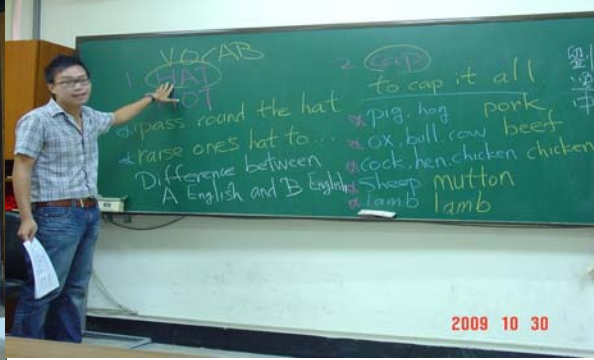 VOCAB
1. HAT
HOT
pass round the hat
raise ones hat to ...
Difference between
A English and B English
2. cap
to cap it all
pig, hog pork
ox, bull, cow beef
cock, hen, chicken chicken
Sheep mutton
lamb lamb
2009 10 30